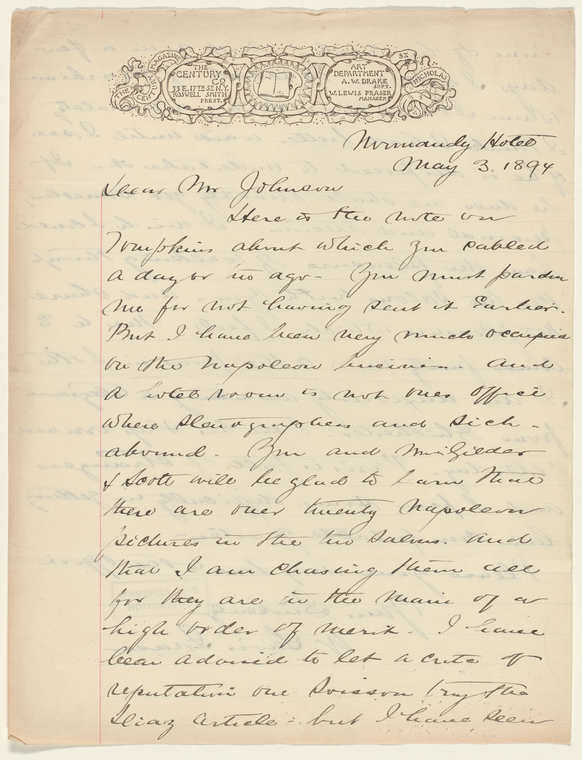 THE CENTURY MAGAZINE
THE
CENTURY
CO
33 E. 17TH ST. N.Y.
ROSWELL SMITH
PREST.
ART
DEPARTMENT
A. W. DRAKE
SUPT.
W. LEWIS FRASER
MANAGER
ST. NICHOLAS
Normandy Hotel
May 3. 1894
Dear Mr Johnson
Here is the note on
Tompkins about which you cabled
a day or two ago - You must pardon
me for not having sent it Earlier.
But I have been very much occupied
on the Napoleon business. and
a hotel room is not ones office
where stenographers and sich -
abound. You and Mr Gilder
& Scott will be glad to learn that
there are over twenty Napoleon
pictures in the two Salons. and
that I am chasing them all
for they are in the main of a
high order of merit. I have
been advised to let a critic of
reputation one Soisson try the
Diaz article: but I have seen